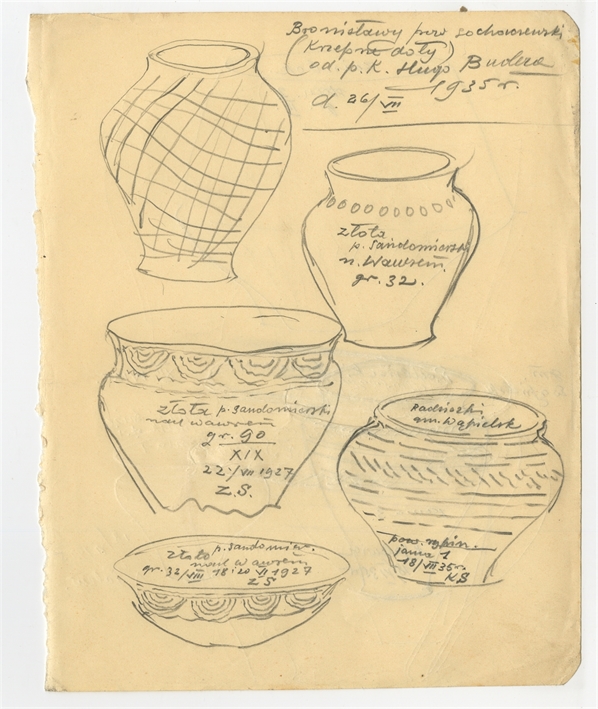 Bronisławy pow sochaczewski
(Krzepne doły)
od. p. K. Hugo Budera
d. 26/VII 1935 r.
złota
p. Sandomierski
n. Wawrem.
gr. 32.
złota p. sandomierski
nad wawrem
gr. 90
XIX
22./VII 1927
Z.S.
Radziczki
gm. Wąpielsk
pow. rypin.
jama 1
18/VII 35 r.
K S
złota p. sandomier.
nad wawrem
gr. 32/VIII 18 i 20 VI 1927
Z S